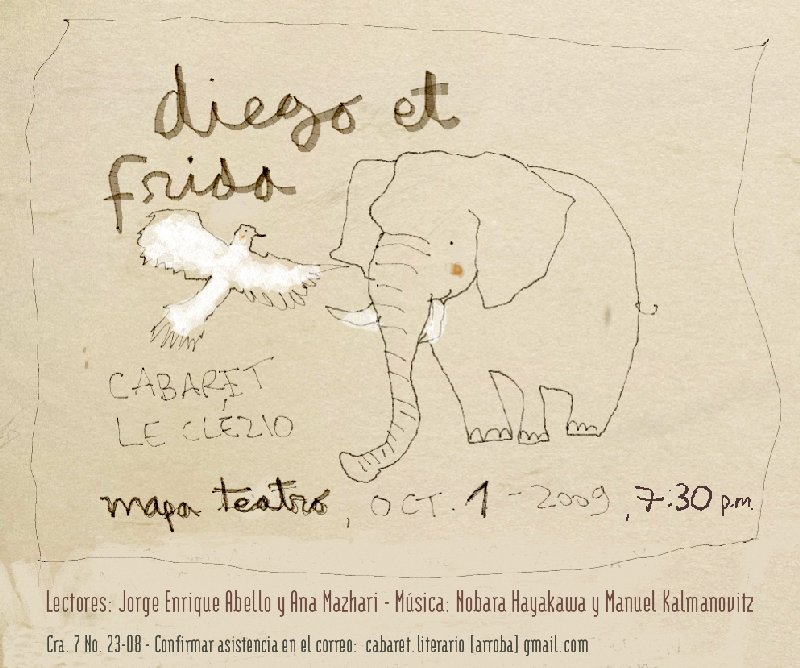 diego et
frida
CABARET
LE CLÉZIO
mapa teatro, OCT. 1 - 2009, 7:30 p.m.
Lectores: Jorge Enrique Abello y Ana Mazhari - Música: Nobara Hayakawa y Manuel Kalmanovitz
Cra. 7 No. 23-08 - Confirmar asistencia en el correo: cabaret.literario [arroba] gmail.com